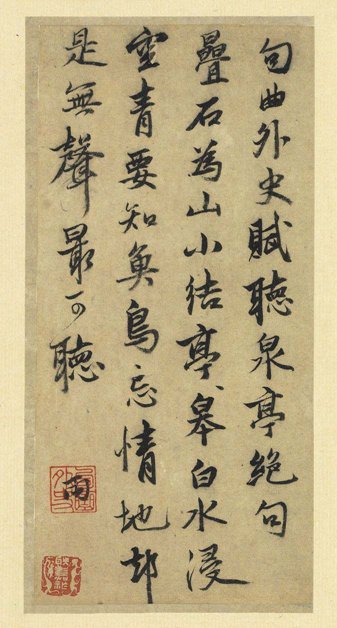 句曲外史賦聽泉亭絕句
疊石為山小結亭〻皋白水浸
空青要知魚鳥忘情地却
是無聲最可聽
雨